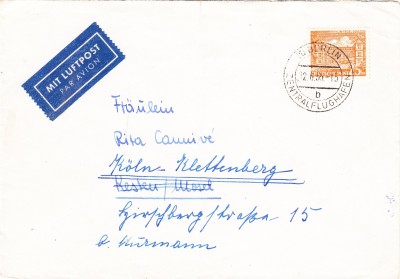 MIT LUFTPOST
PAR AVION
BERLIN
ZENTRALFLUGHAFEN
b
Fräulein
Rita Cannivé
Köln-Klettenberg
Kesten/Mosel
Hirschbergstraße 15
b. Kurmann